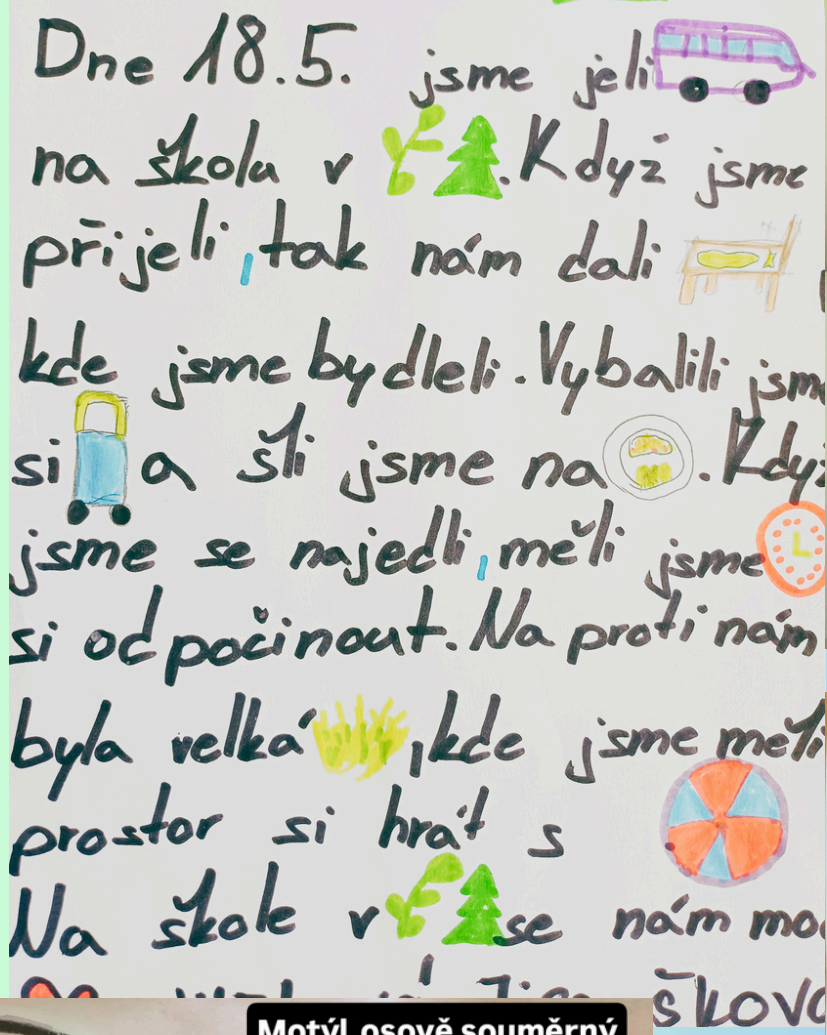 Dne 18.5. jsme jeli
na školu v . Když jsme
přijeli, tak nám dali
kde jsme bydleli. Vybalili jsme
si a šli jsme na . Když
jsme se najedli, měli jsme
si odpočinout. Na proti nám
byla velká , kde jsme měli
prostor si hrát s
Na škole v se nám
Motýl osově souměrný